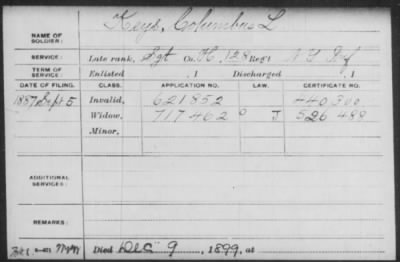 NAME OF SOLDIER: Keys, Columbus L
SERVICE: Late rank, Sgt Co. H, 128 Reg't N Y Inf
TERM OF SERVICE: Enlisted , 1 Discharged , 1
DATE OF FILING. CLASS. APPLICATION NO. LAW. CERTIFICATE NO.
1887 Sept 5 Invalid, 621852 440300
Widow, 717462 J 526489
Minor,
ADDITIONAL SERVICES:
REMARKS:
Died Dec 9, 1899, at